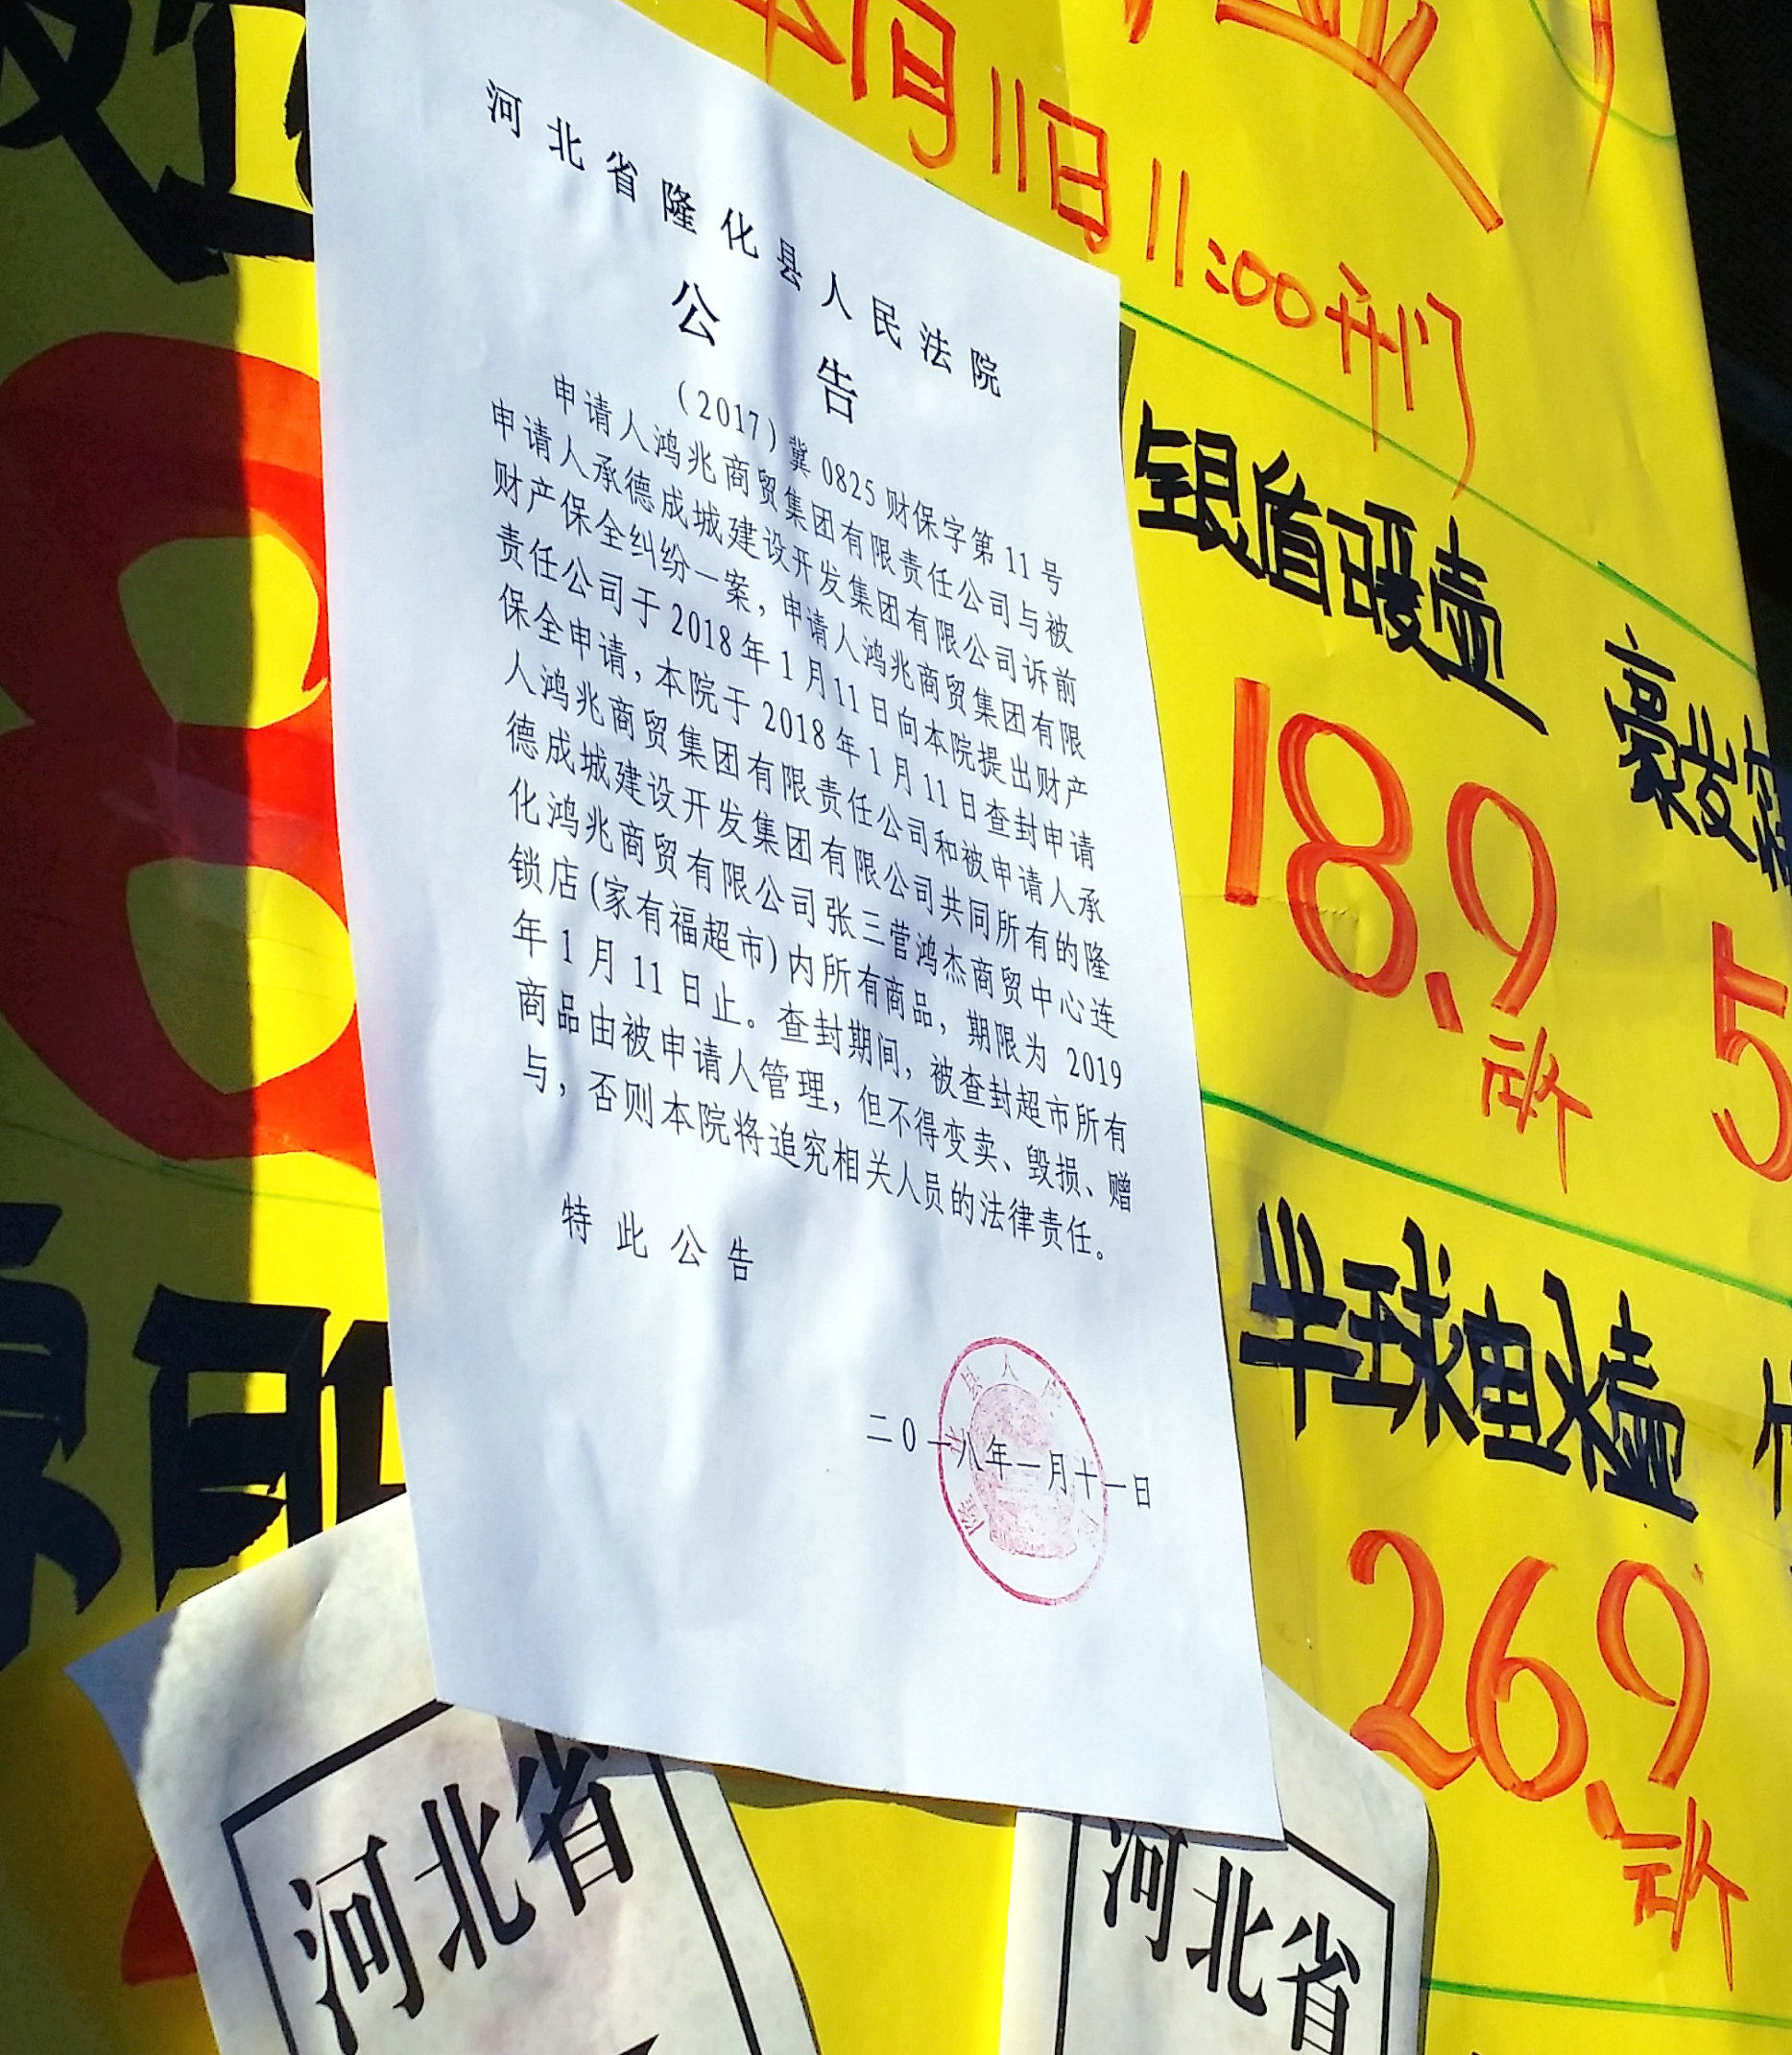 河北省隆化县人民法院
公告
(2017)冀0825财保字第11号
申请人鸿兆商贸集团有限责任公司与被
申请人承德成城建设开发集团有限公司诉前
财产保全纠纷一案，申请人鸿兆商贸集团有限
责任公司于2018年1月11日向本院提出财产
保全申请，本院于2018年1月11日查封申请
人鸿兆商贸集团有限责任公司和被申请人承
德成城建设开发集团有限公司共同所有的隆
化鸿兆商贸有限公司张三营鸿杰商贸中心连
锁店(家有福超市)内所有商品，期限为2019
年1月11日止。查封期间，被查封超市所有
商品由被申请人管理，但不得变卖、毁损、赠
与，否则本院将追究相关人员的法律责任。
特此公告
二〇一八年一月十一日
月11日11:00开门
银盾暖壶
18.9
元/个
5
半球电水壶
26.9
元/个
8
河北省
河北省